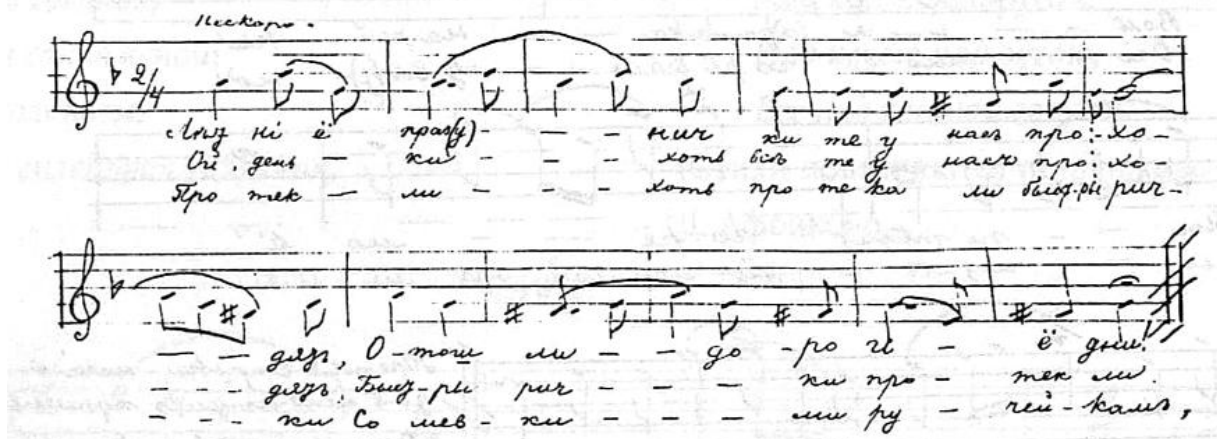 Нескоро.
2/4
ні ё празд(у) - - - - нич ки те у насъ про - хо -
Ой, день — ки - - - хоть все те у насъ про - хо -
Про тек — ли - - - хоть про те ка ли быст-ры рич -
— — дязъ, О - ли - - до - ро гі - ё дни!
- - дязъ. Быст-ры рич - - - - ки про - тек ли.
- - ки Со - ки - - - - ми ру - чей - камъ,